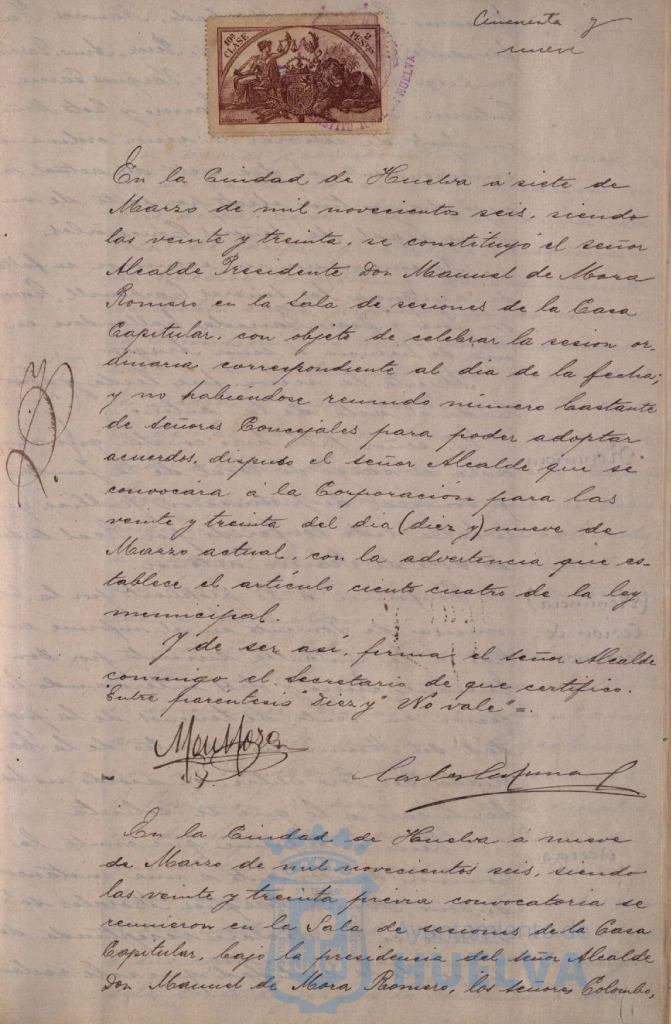 Cincuenta y
nueve
10ª CLASE
2 PESETAS
HUELVA
En la Ciudad de Huelva á siete de
Marzo de mil novecientos seis, siendo
las veinte y treinta, se constituyó el señor
Alcalde Presidente Don Manuel de Mora
Romero en la Sala de sesiones de la Casa
Capitular, con objeto de celebrar la sesion or-
dinaria correspondiente al dia de la fecha;
y no habiéndose reunido número bastante
de señores Concejales para poder adoptar
acuerdos, dispuso el señor Alcalde que se
convocára á la Corporación para las
veinte y treinta del dia (diez y) nueve de
Marzo actual, con la advertencia que es-
tablece el artículo ciento cuatro de la ley
municipal.
Y de ser así, firma el señor Alcalde
conmigo el Secretario de que certifico.
Entre paréntesis "Diez y" "No vale" =.
En la Ciudad de Huelva á nueve
de Marzo de mil novecientos seis, siendo
las veinte y treinta previa convocatoria se
reunieron en la Sala de sesiones de la Casa
Capitular, bajo la presidencia del señor Alcalde
Don Manuel de Mora Romero, los señores Colombo,
Ayuntamiento de
HUELVA